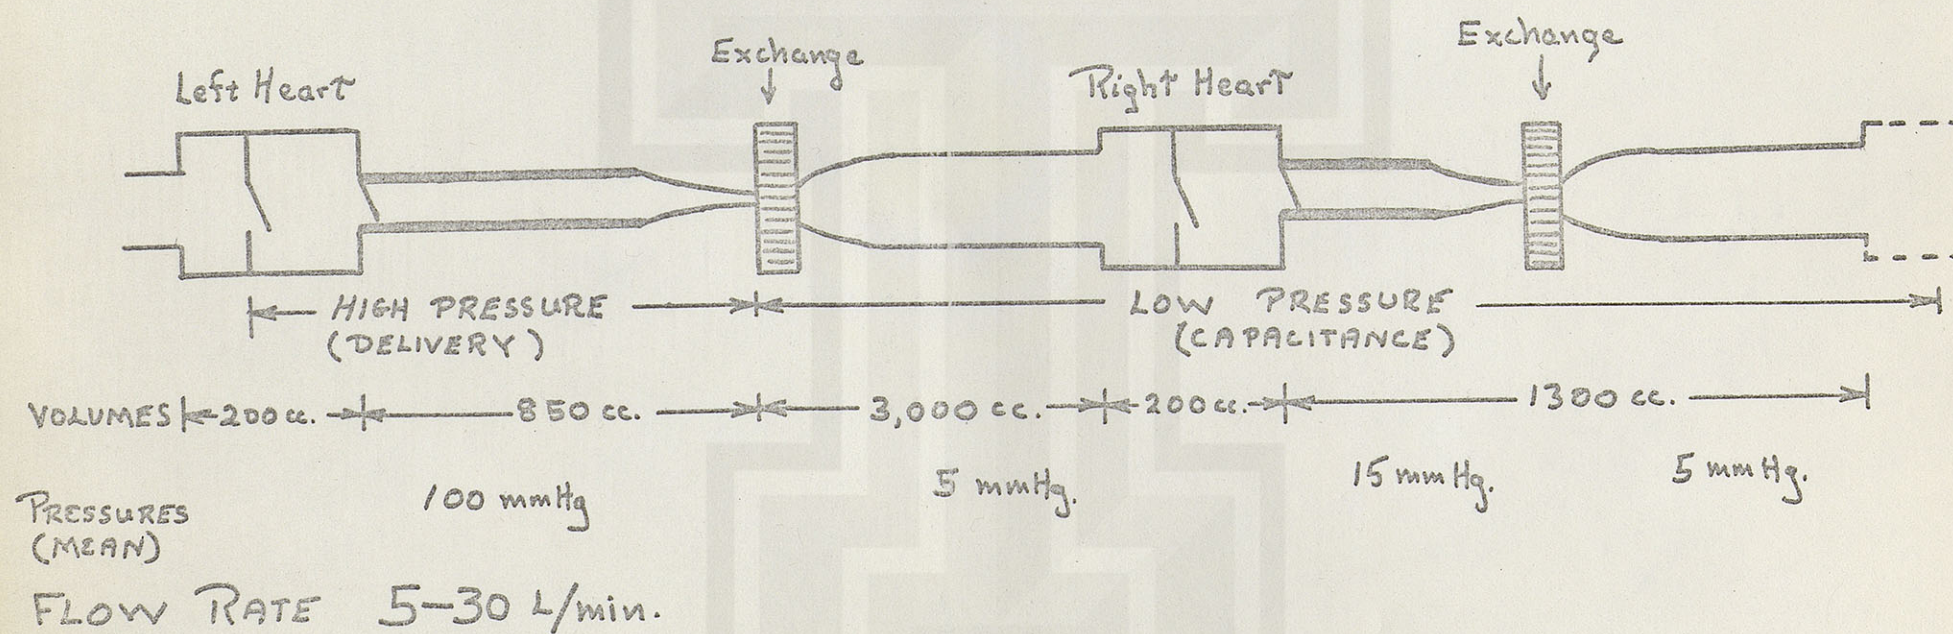 Exchange
Exchange
Left Heart
Right Heart
HIGH PRESSURE
(DELIVERY)
LOW PRESSURE
(CAPACITANCE)
VOLUMES 200 cc. 850 cc. 3,000 cc. 200 cc. 1300 cc.
PRESSURES
(MEAN)
100 mmHg
5 mmHg.
15 mmHg.
5 mmHg.
FLOW RATE 5-30 L/min.